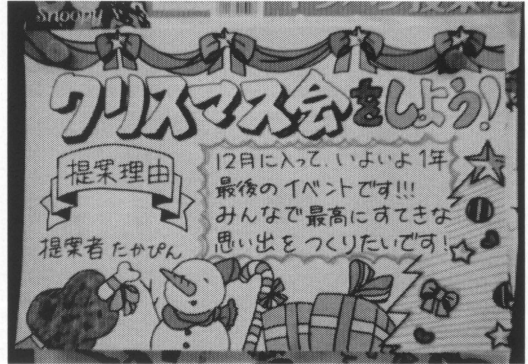 Snoopy
クリスマス会をしよう!
提案理由
12月に入って、いよいよ1年
最後のイベントです!!!
みんなで最高にすてきな
思い出をつくりたいです!
提案者 たかぴん